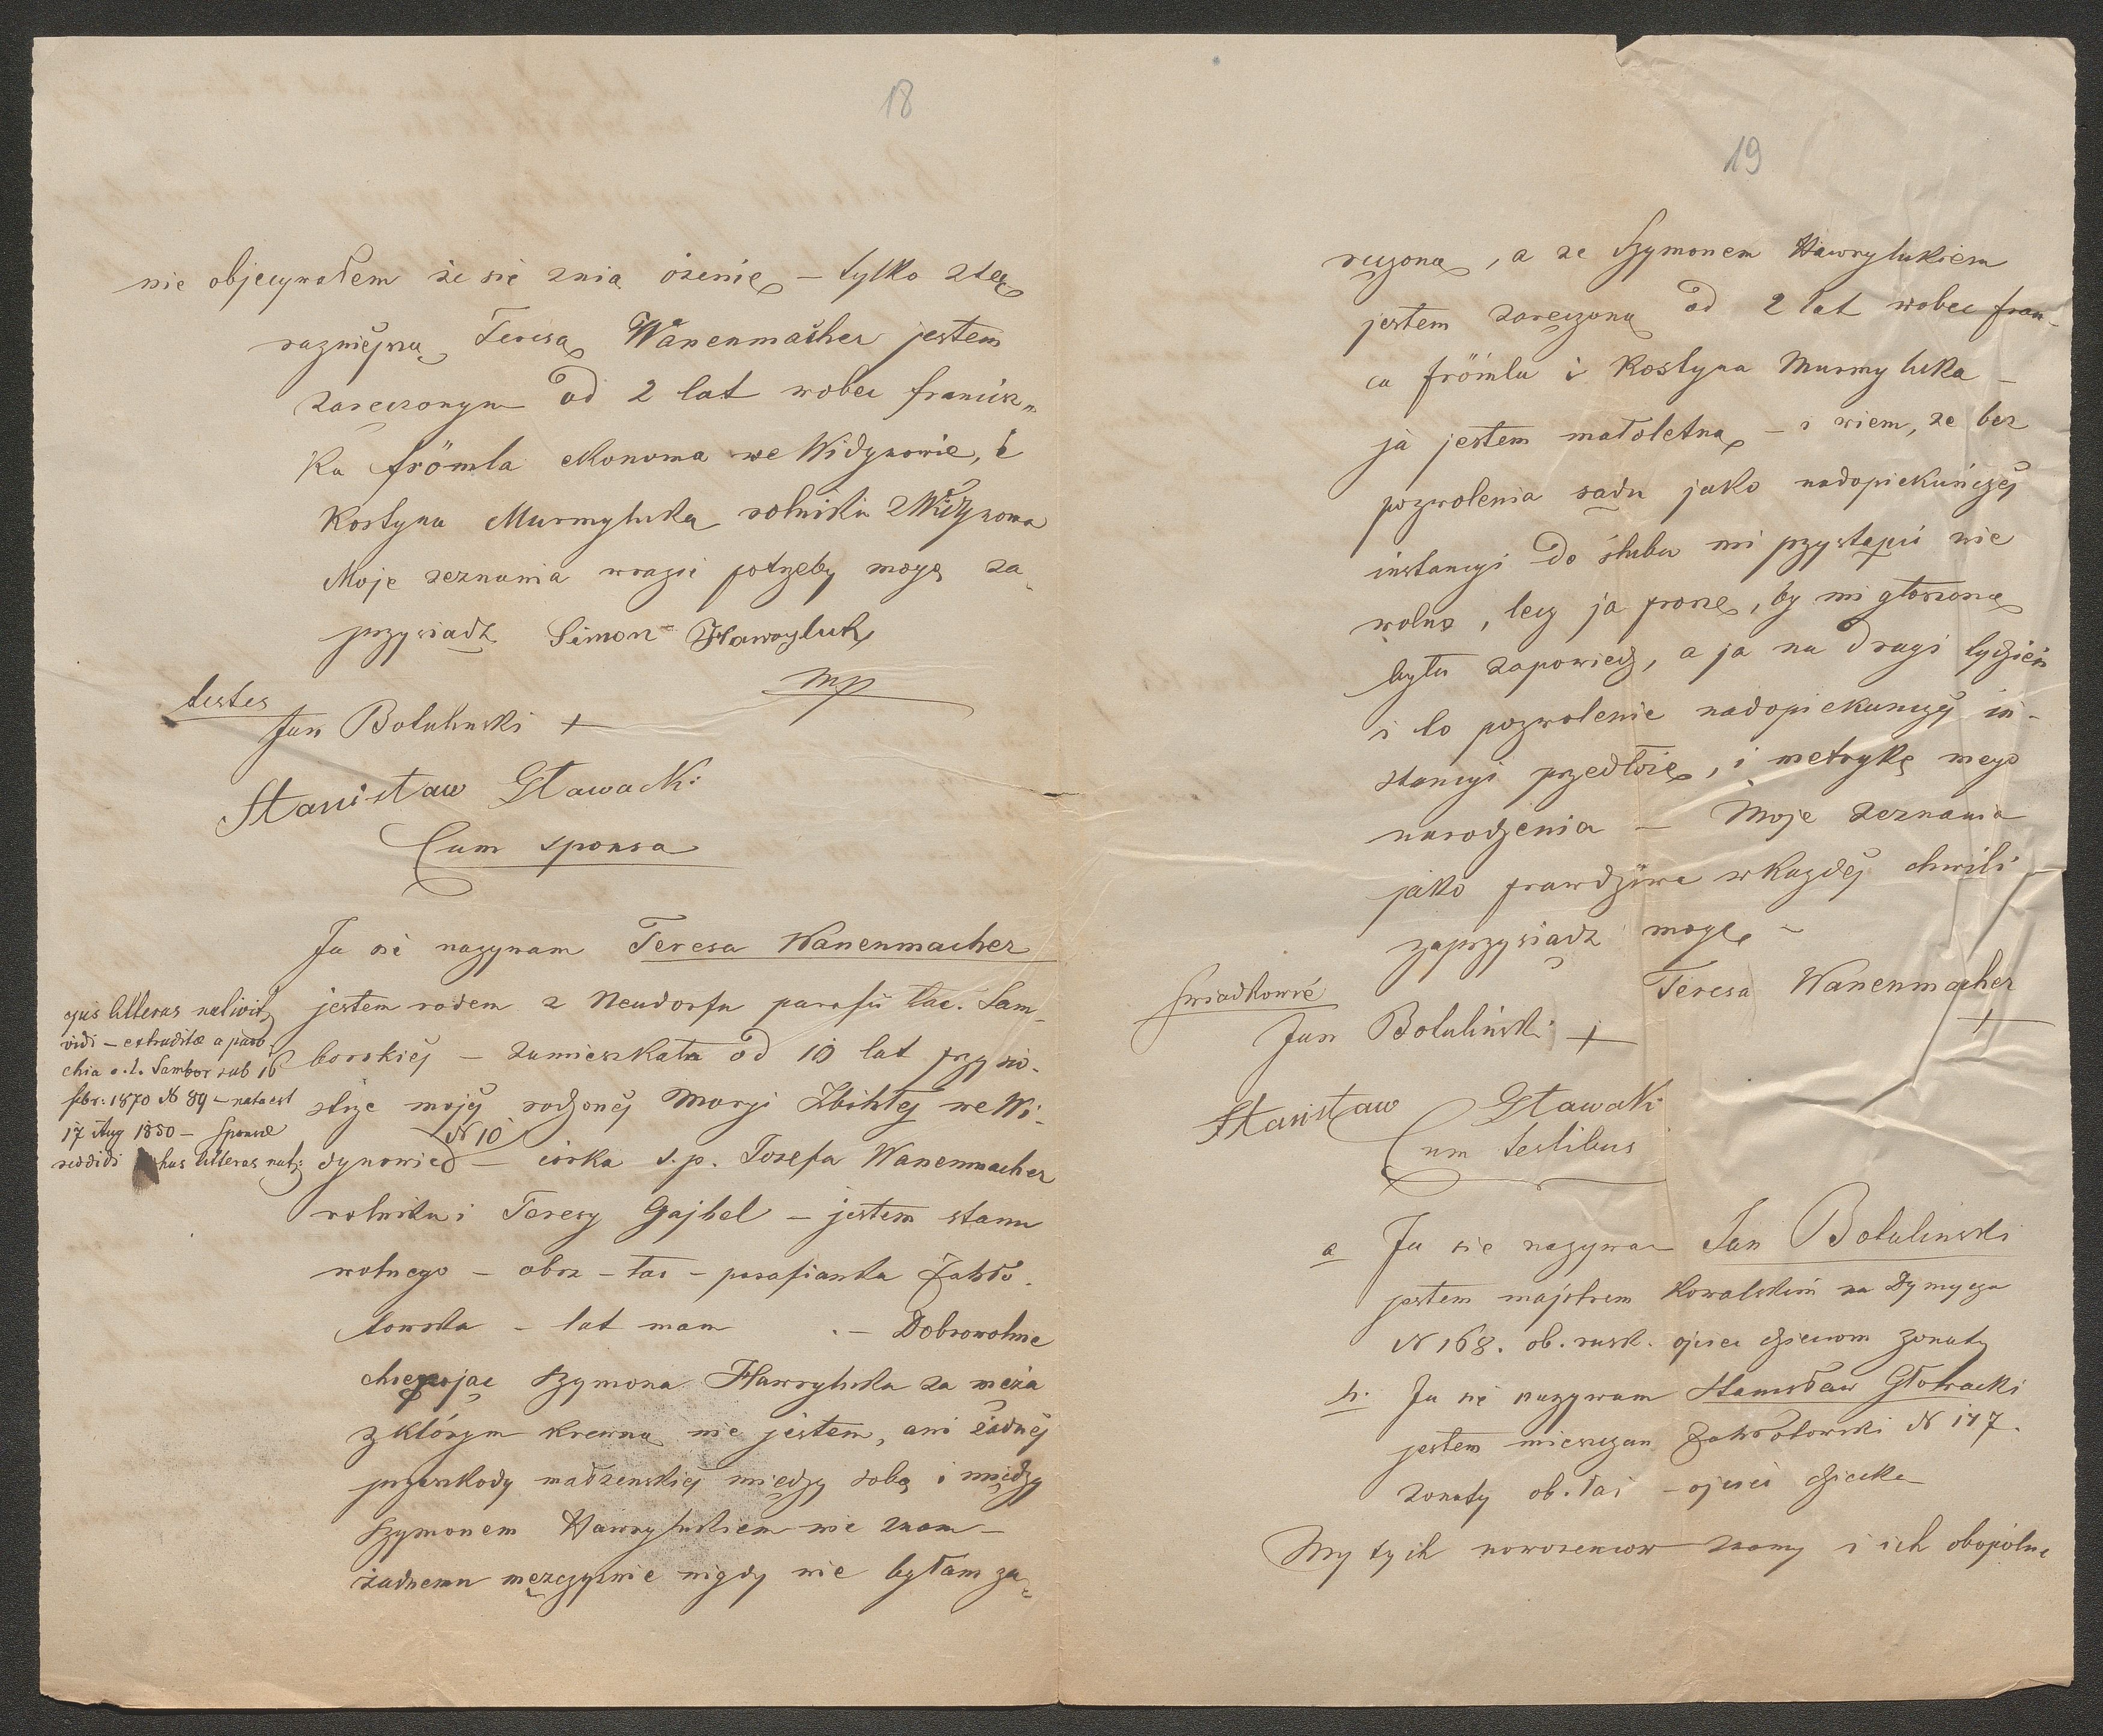 18
nie objecywałem że się znią ożenię – tylko ztą
razniejszą Teresą Wanenmacher jestem
zaręczonym od 2 lat wobec francisz„
ka frömla ekonoma we Widynowie, i
Kostyna Murmyluka rolnika z Widynowa
Moje zeznania wrazie potrzeby mogę za„
przysiądz Simon Hawryluk
mp
testes
Jan Botulinski +
Stanisław Gławacki
Cum sponsa
Ja się nazywam Teresa Wanenmacher
jestem rodem z Neudorfu parafii łac. Sam„
borskiéj – zamieszkała od 10 lat przy sio„
strze mojéj rodzonéj Maryi we Wi„
N 10
dynowie – córka s.p. Josefa Wanenmacher
rolnika i Teresy Gajbel – jestem stanu
wolnego – obrz – łac – parafianka Zabło„
towska – lat mam . – Dobrowolnie
Szymona Hawryluka za męża
z którym krewną nie jestem, ani żadnéj
przeszkody małżenskiéj między sobą i między
Szymonem Hawrylukiem nie znam –
żadnemu męzczyznie nigdy nie byłam za„
ejus litteras nativit;
vidi – extraditæ a paro„
chia r. l. Sambor sub 16
febr: 1870 N 89 – nata est
17 Aug 1850 – Sponsæ
reddidi has litteras nat;
19
ręczoną, a ze Szymonem Hawrylukiem
jestem zaręczoną od 2 lat wobec fran„
ca frömla i Kostyna Murmyluka –
ja jestem małoletną – i wiem, ze bez
pozwolenia sądu jako nadopiekuńczéj
instancyi do ślubu mi przystąpić nie
wolno, lecz ja proszę, by mi głoszoną
była zapowiedz, a ja na drugi tydzień
i to pozwolenie nadopiekunczéj in„
stancyi przedłożę, i metrykę mego
narodzenia – Moje zeznania
jako prawdziwe wkazdéj chwili
zaprzysiądz mogę –
Teresa Wanenmacher
+
Swiadkowie
Jan Botuliński +
Stanisław Gławacki
Cum testibus
a Ja się nazywam Jan Botulinski
jestem majstrem kowalskim na Dymycza
N 168. ob. rusk. ojciec dzieciom żonaty
b. Ja się nazywam Stanisław Głowacki
jestem mieszczan Zabłotowski N 147.
zonaty ob. łac – ojciec dziecka
My tych nowożencow znamy i ich obopólne